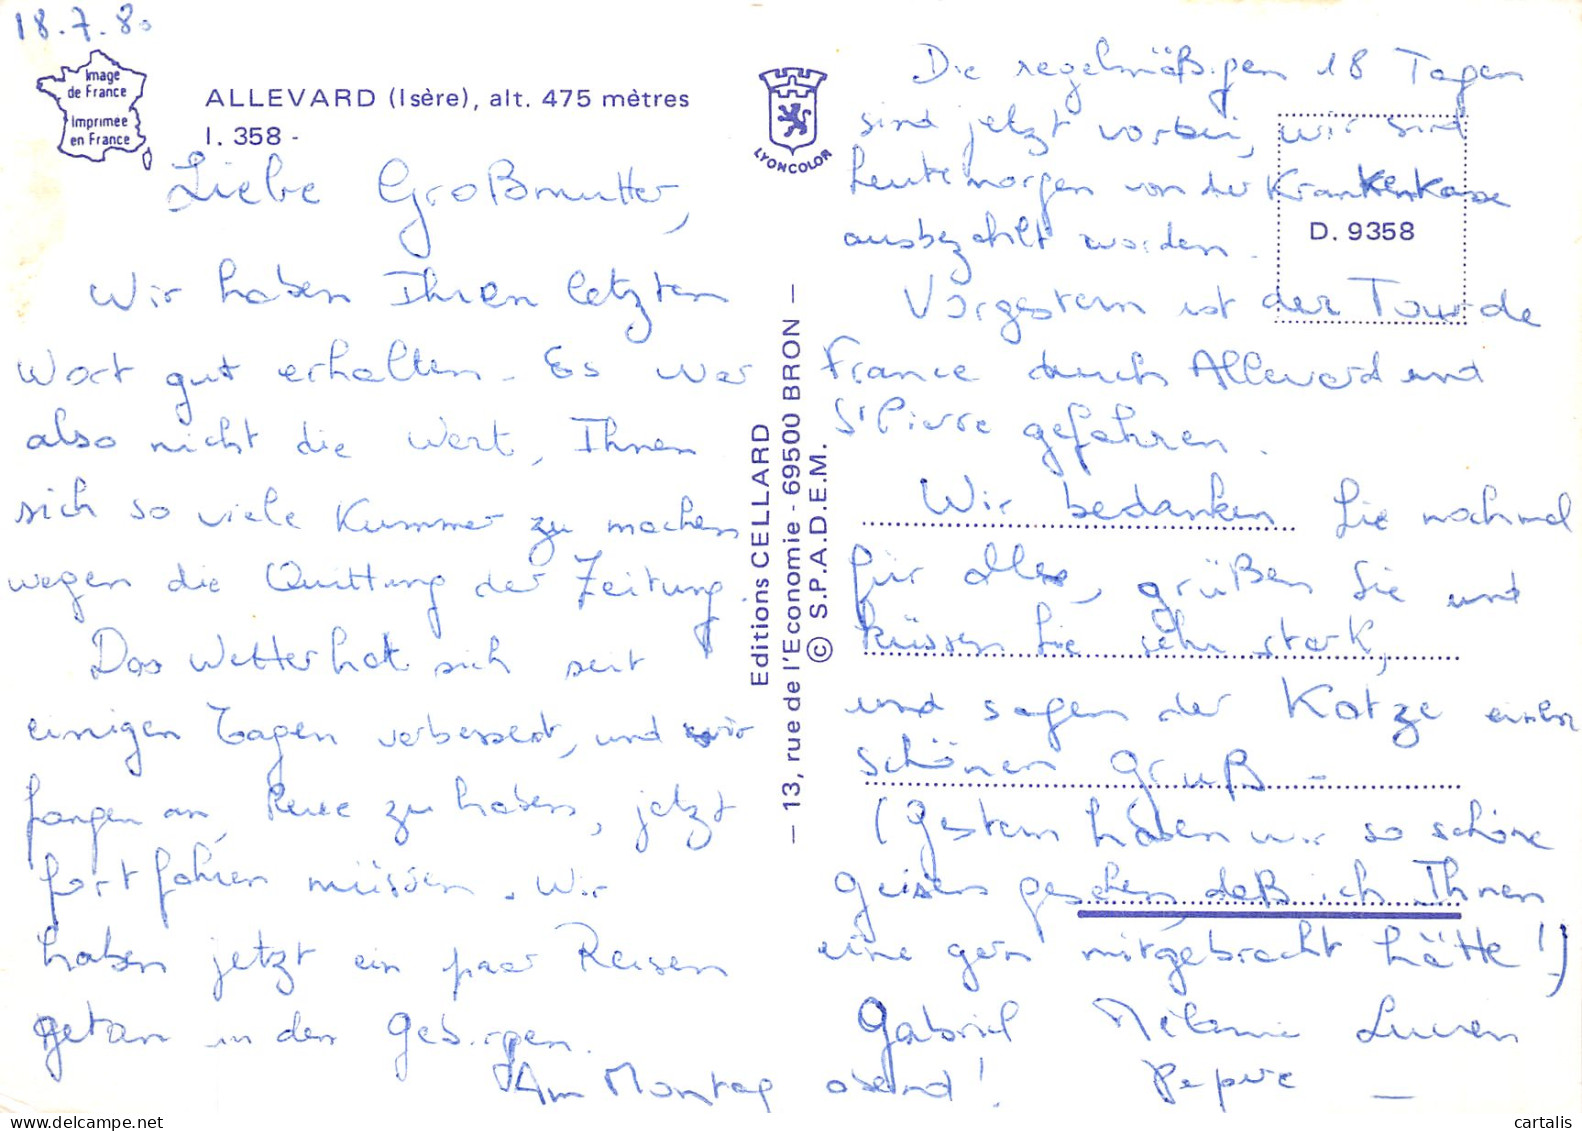 18.7.80
Image
de France
Imprimée
en France
ALLEVARD (Isère), alt. 475 mètres
I. 358 -
Liebe Großmutter,
Wir haben Ihren letzten
Wort gut erhalten. Es war
also nicht die Wert, Ihnen
sich so viele Kummer zu machen
wegen die Quittung der Zeitung.
Das Wetter hat sich seit
einigen Tagen verbessert, und wir
fangen an, zu haben, jetzt
fortfahren müssen. Wir
haben jetzt ein paar Reisen
getan in den Gebirgen.
Am Montag abend!
LYONCOLOR
Editions CELLARD
— 13, rue de l'Economie - 69500 BRON —
© S.P.A.D.E.M.
D. 9358
Die regelmäßigen 18 Tagen
sind jetzt vorbei, wir sind
heute morgen von der Krankenkasse
ausbezahlt worden.
Vorgestern ist der Tour de
France durch Allevard und
St Pierre gefahren.
Wir bedanken Sie nochmal
für alles, grüßen Sie und
küssen Sie sehr stark,
und sagen der Katze einen
schönen Gruß -
(Gestern haben wir so schöne
Geisen gesehen, daß ich Ihnen
eine gern mitgebracht hätte!)
Gabriel Mélanie Lucien